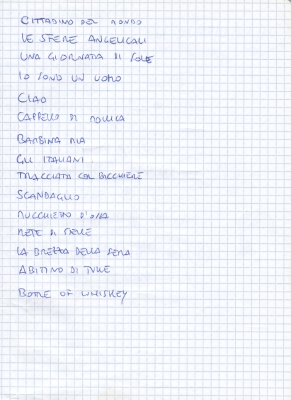 CITTADINO DEL MONDO
LE SFERE ANGELICALI
UNA GIORNATA DI SOLE
IO SONO UN UOMO
CIAO
CAPPELLO DI
BAMBINA MIA
GLI ITALIANI
COL BICCHIERE
SCANDAGLIO
MUCCHIETTO D'OSSA
RETE DI STELLE
LA BREZZA DELLA SERA
ABITINO DI TULLE
BOTTLE OF WHISKEY